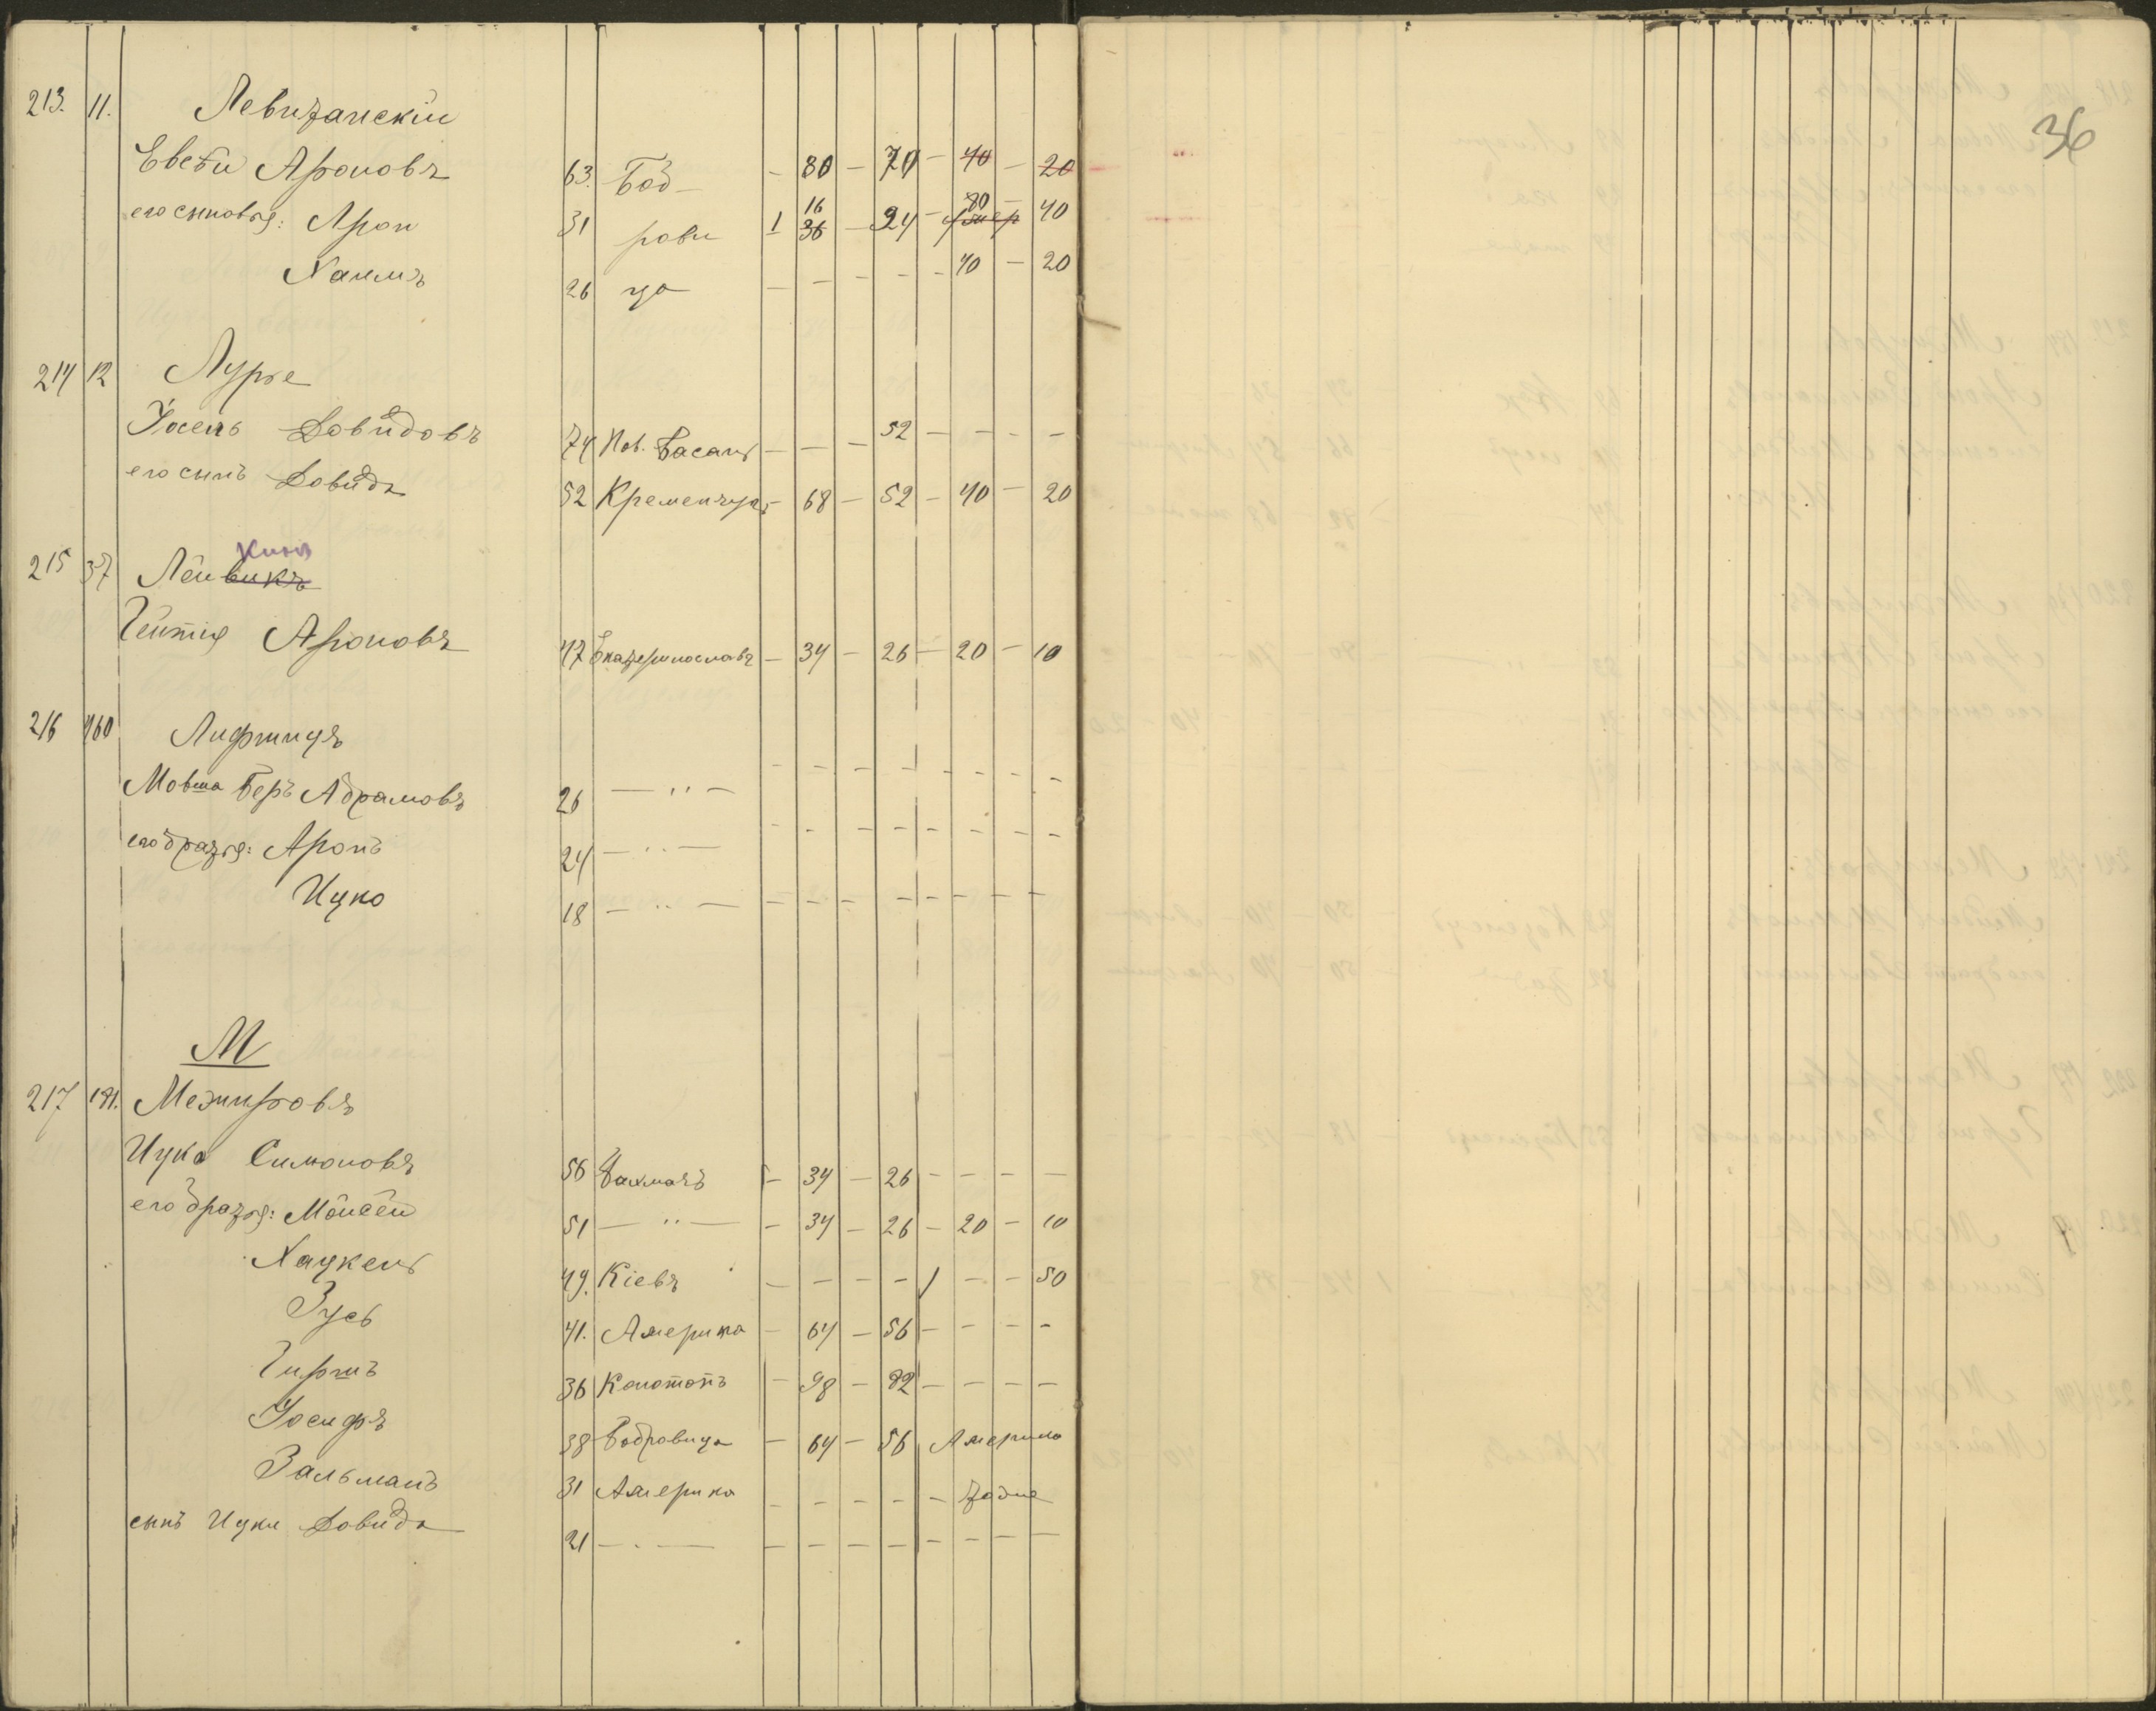 36
213. 11. Левитанскій
Евсѣй Ароновъ 63. Боб- — 80 — 70 — 40 — 20
его сыновья: Аронъ 31 рови 1 16 36 — 24 — 80 Умер 40
Хаимъ 26 ца — — — — 40 — 20
214 12 Лурье
Іосель Довидовъ 74 Нов. Басань — — — 52 — — — —
его сынъ Довидъ 52 Кременчугъ — 68 — 52 — 40 — 20
Кинъ
215 37 Лейвикъ
Ароновъ 47 Екатеринославъ — 34 — 26 — 20 — 10
216 460 Лифшицъ
Мовша Беръ Абрамовъ 26 — " — — — — — — — — —
его братья: Аронъ 24 — " — — — — — — — — —
Ицко 18 — " — — — — — — — — —
М
217 181. Межировъ
Ицка Симоновъ 56 Бахмачъ — 34 — 26 — — — —
его братья: Мойсей 51 — " — — 34 — 26 — 20 — 10
Хацкель 49. Кіевъ — — — — 1 — — 50
Зусь 41. Америка — 64 — 56 — — — —
Гиршъ 36 Конотопъ — 98 — 82 — — — —
Іосифъ 38 Бобровица — 64 — 56 Америка
Зальманъ 31 Америка — — — — — тоже
сынъ Ицки Довидъ 21 — " — — — — — — — — —